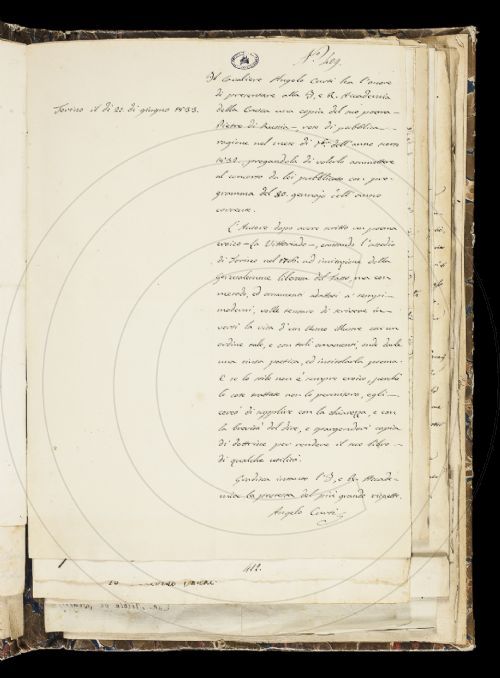 N.º 409.
Il Cavaliere Angelo Curti ha l'onore
di presentare alla I. e R. Accademia
Torino il dì 21 di giugno 1833.
della Crusca una copia del suo poema
Pietro di Russia – reso di pubblica
ragione nel mese di 9bre dell'anno scorso
1832, pregandola di volerlo ammettere
al concorso da lei pubblicato con pro-
gramma del 30 gennajo dell'anno
corrente.
L'Autore dopo avere scritto un poema
eroico – la Vittoriade –, cantando l'assedio
di Torino nel 1706 ad imitazione della
Gerusalemme liberata del Tasso, ma con
metodo, ed ornamenti adattati a' tempi
moderni, volle tentare di scrivere in
versi la vita d'un Uomo illustre con un
ordine tale, e con tali ornamenti, onde darle
una tinta poetica, ed intitolarla poema.
E se lo stile non è sempre eroico, perchè
le cose trattate non lo permisero, egli
cercò di supplire con la chiarezza, e con
la brevità del dire, e spargendovi copia
di dottrine per rendere il suo libro
di qualche utilità.
Gradisca intanto l'I. e R. Accade-
mia la protesta del più grande rispetto.
Angelo Curti
412.